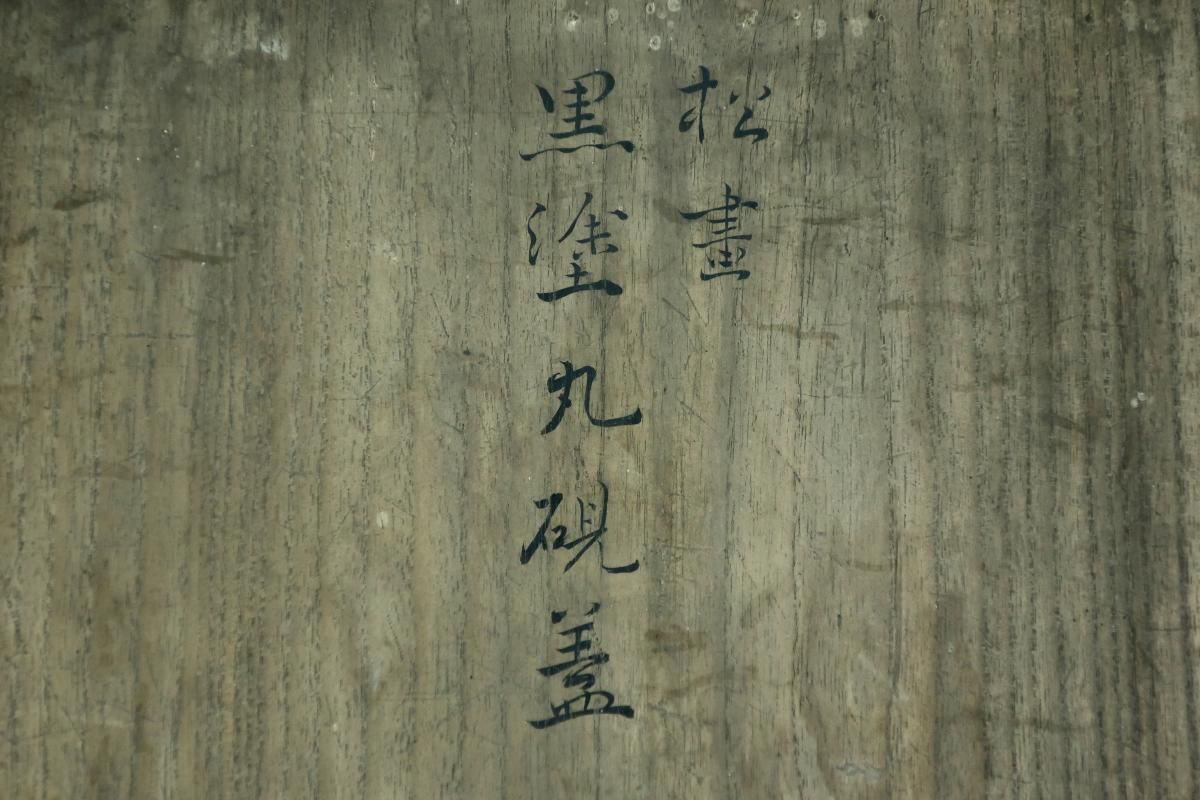 松畫
黒塗丸硯蓋